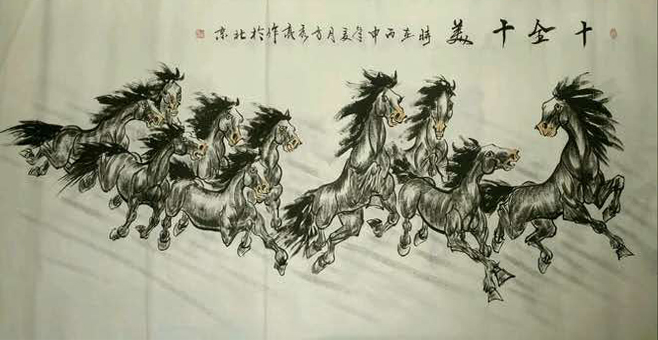 十全十美 時在丙申年夏月方作於北京